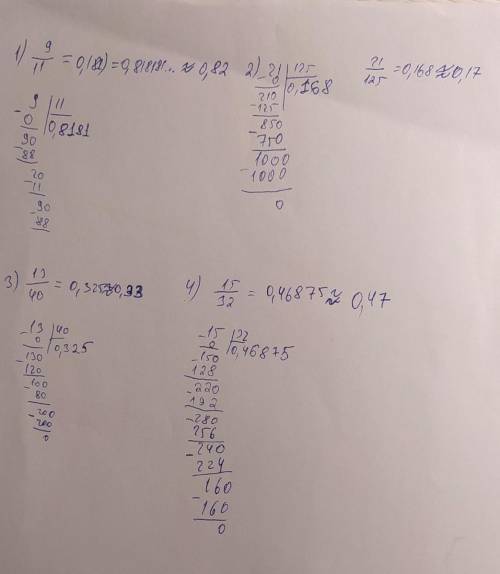 1) 9/11 = 0,(81) = 0,818181... ≈ 0,82
9 | 11
0 | 0,8181
90
88
20
11
90
88
2) 21 | 125
0 | 0,168
210
125
850
750
1000
1000
0
21/125 = 0,168 ≈ 0,17
3) 13/40 = 0,325 ≈ 0,33
13 | 40
0 | 0,325
130
120
100
80
200
200
0
4) 15/32 = 0,46875 ≈ 0,47
15 | 32
0 | 0,46875
150
128
220
192
280
256
240
224
160
160
0